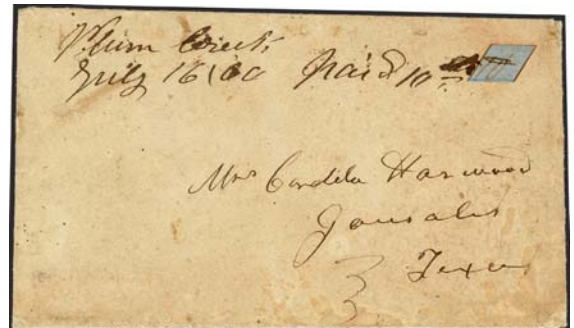 Plum Creek
July 16/60 paid 10
Mrs Cordelia Harwood
Gonzales
Texas